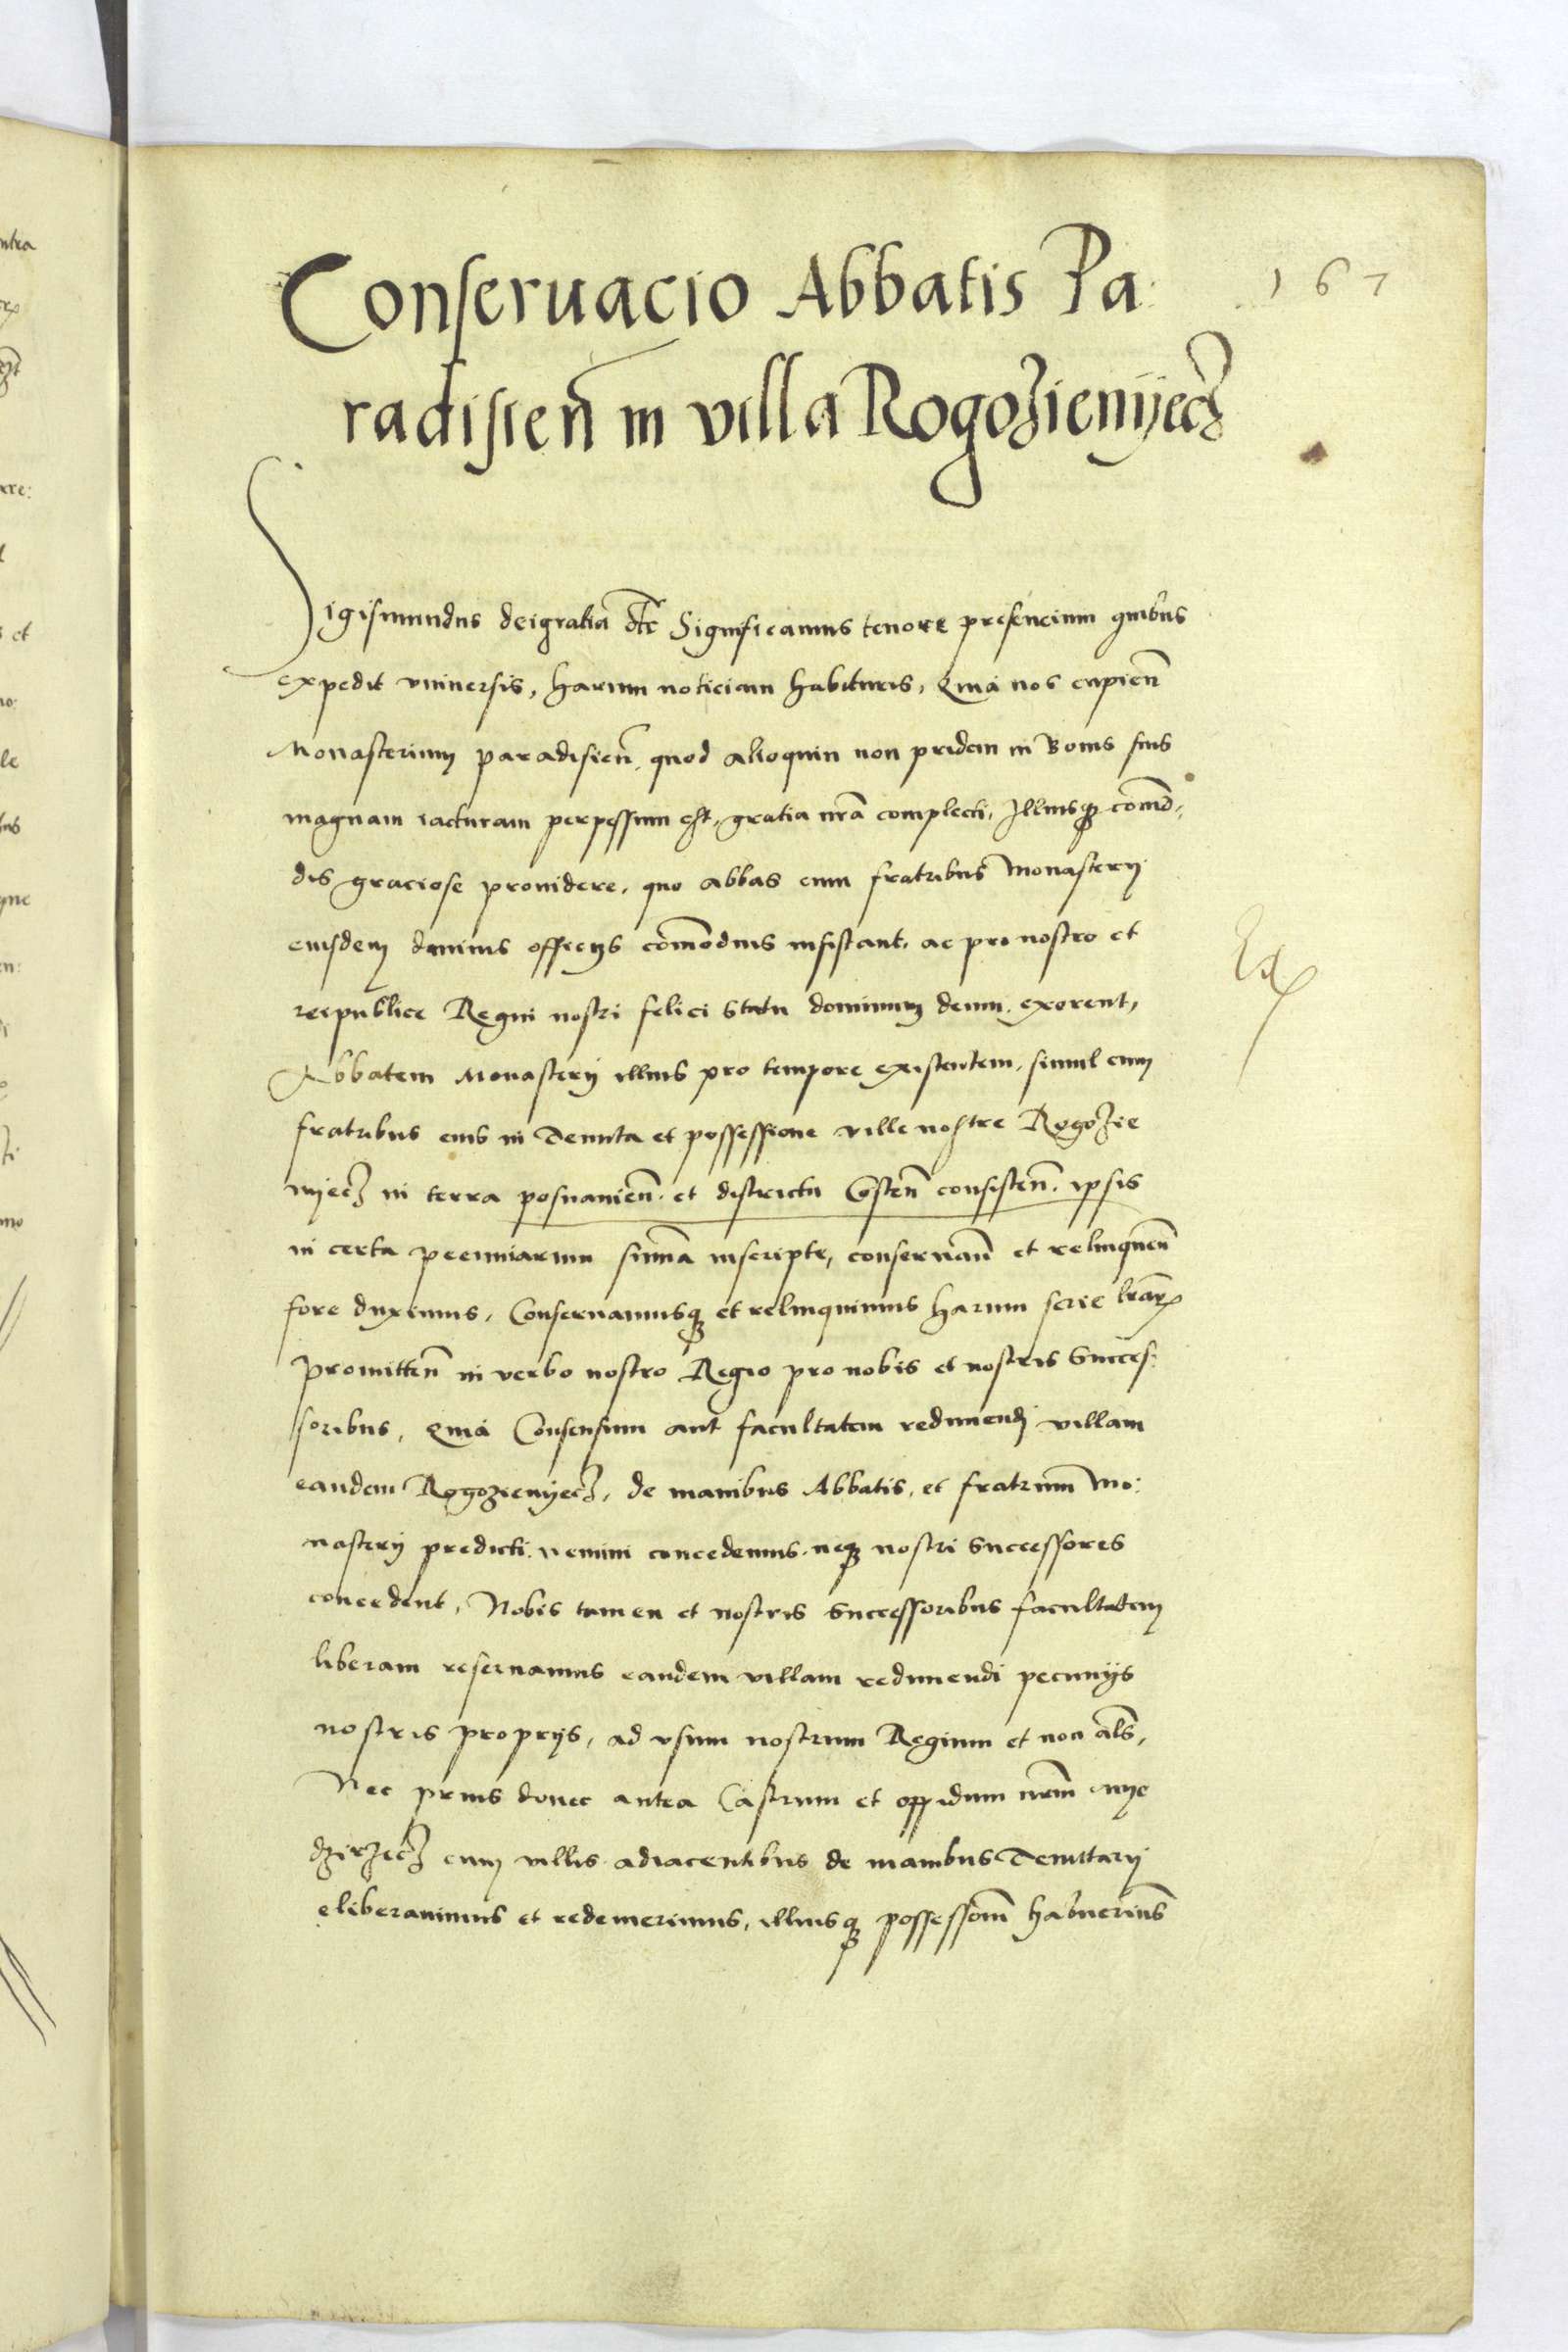 Conseruacio Abbatis Pa
167
radisien in villa Rogozienyecz
Sigismundus dei gratia etc Significamus tenore presencium quibus
expedit vniuersis, harum noticiam habituris, Quia nos cupien
Monasterium paradisien, quod alioquin non pridem in Bonis suis
magnam iacturam perpessum est, gratia nra complecti, Illiusq comod,
dis graciose prouidere, quo abbas cum fratribus Monasterij
eiusdem diuinis officijs comodius insistant, ac pro nostro et
reipublice Regni nostri felici statu dominum deum exorent,
Abbatem Monasterij illius pro tempore existentem, simul cum
fratribus eius in Tenuta et possessione ville nostre Rogozie
nyecz in terra posnanien. et districtu Costen consisten. ipsis
in certa pecuniarum suma inscripte, conseruan et relinquen
fore duximus, Conseruamusq et relinquimus harum serie lrar
Promitten in verbo nostro Regio pro nobis et nostris Succes:
soribus, Quia Consensum aut facultatem redimendj villam
eandem Rogozienyecz, de manibus Abbatis, et fratrum Mo:
nasterij predicti nemini concedemus. neq nostri Successores
concedent, Nobis tamen et nostris Successoribus facultatem
liberam reseruamus eandem villam redimendi pecunijs
nostris proprijs, ad vsum nostrum Regium et non als,
Nec prius donec antea Castrum et oppidum nrm Mye
dzirzecz cum villis adiacentibus de manibus Tenuttarij
eliberauimus et redemerimus, illiusq possessiom habuerims